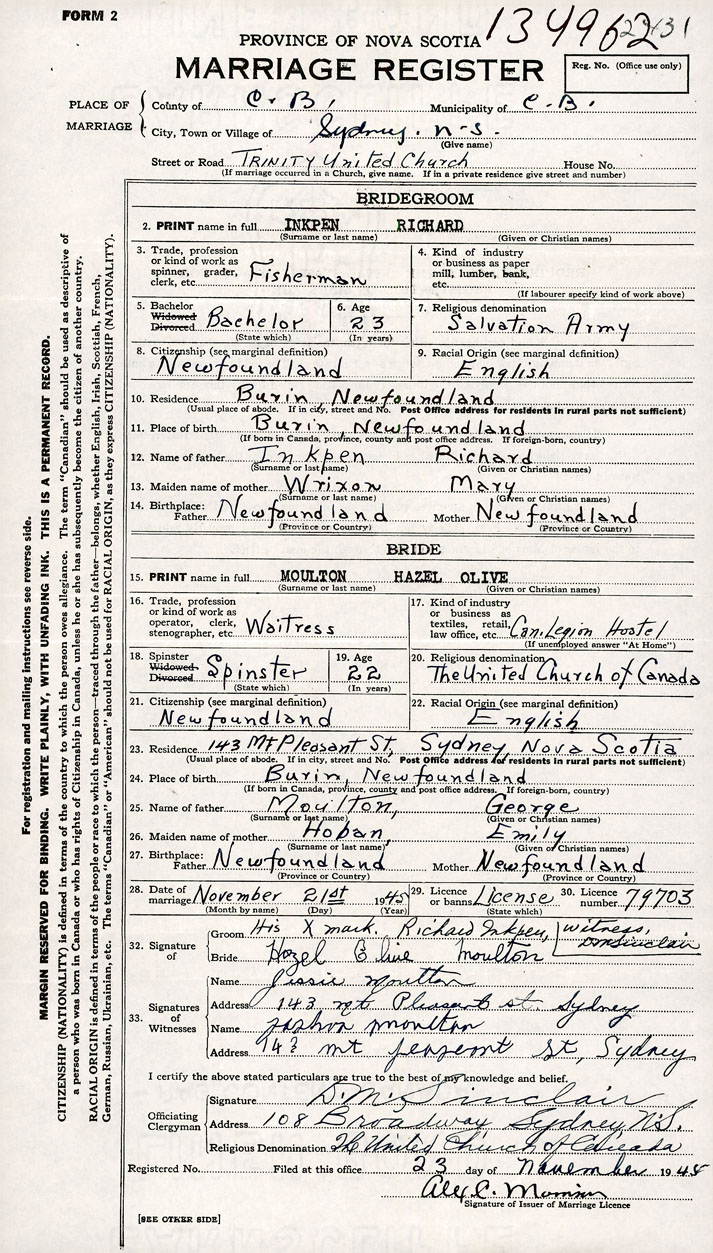 FORM 2
134962
PROVINCE OF NOVA SCOTIA
MARRIAGE REGISTER
Reg. No. (Office use only)
PLACE OF MARRIAGE
County of C. B. Municipality of C. B.
City, Town or Village of Sydney. N-S.
(Give name)
Street or Road TRINITY United Church House No.
(If marriage occurred in a Church, give name. If in a private residence give street and number)
BRIDEGROOM
2. PRINT name in full INKPEN RICHARD
(Surname or last name) (Given or Christian names)
3. Trade, profession or kind of work as spinner, grader, clerk, etc. Fisherman
4. Kind of industry or business as paper mill, lumber, bank, etc.
(If labourer specify kind of work above)
5. Bachelor Widowed Divorced Bachelor
(State which)
6. Age 23
(In years)
7. Religious denomination
Salvation Army
8. Citizenship (see marginal definition)
Newfoundland
9. Racial Origin (see marginal definition)
English
10. Residence Burin, Newfoundland
(Usual place of abode. If in city, street and No. Post Office address for residents in rural parts not sufficient)
11. Place of birth Burin, Newfoundland
(If born in Canada, province, county and post office address. If foreign-born, country)
12. Name of father Inkpen Richard
(Surname or last name) (Given or Christian names)
13. Maiden name of mother Wrixon Mary
(Surname or last name) (Given or Christian names)
14. Birthplace: Father Newfoundland Mother Newfoundland
(Province or Country) (Province or Country)
BRIDE
15. PRINT name in full MOULTON HAZEL OLIVE
(Surname or last name) (Given or Christian names)
16. Trade, profession or kind of work as operator, clerk, stenographer, etc. Waitress
17. Kind of industry or business as textiles, retail, law office, etc. Can. Legion Hostel
(If unemployed answer "At Home")
18. Spinster Widowed Divorced Spinster
(State which)
19. Age 22
(In years)
20. Religious denomination
The United Church of Canada
21. Citizenship (see marginal definition)
Newfoundland
22. Racial Origin (see marginal definition)
English
23. Residence 143 Mt Pleasant St, Sydney, Nova Scotia
(Usual place of abode. If in city, street and No. Post Office address for residents in rural parts not sufficient)
24. Place of birth Burin, Newfoundland
(If born in Canada, province, county and post office address. If foreign-born, country)
25. Name of father Moulton, George
(Surname or last name) (Given or Christian names)
26. Maiden name of mother Hoban, Emily
(Surname or last name) (Given or Christian names)
27. Birthplace: Father Newfoundland Mother Newfoundland
(Province or Country) (Province or Country)
28. Date of marriage November 21st 1945
(Month by name) (Day) (Year)
29. Licence or banns License
(State which)
30. Licence number 79703
32. Signature of
Groom His X mark. Richard Inkpen, witness,
Bride Hazel Olive Moulton DM Sinclair
33. Signatures of Witnesses
Name Jessie Moulton
Address 143 mt Pleasant st. Sydney
Name Moulton
Address 143 mt st, Sydney
I certify the above stated particulars are true to the best of my knowledge and belief.
Officiating Clergyman
Signature D. M. Sinclair
Address 108 Broadway Sydney N.S.
Religious Denomination The United Church of Canada
Registered No. Filed at this office 23 day of November 1945
Alex C.
Signature of Issuer of Marriage Licence
[SEE OTHER SIDE]
For registration and mailing instructions see reverse side.
MARGIN RESERVED FOR BINDING. WRITE PLAINLY, WITH UNFADING INK. THIS IS A PERMANENT RECORD.
CITIZENSHIP (NATIONALITY) is defined in terms of the country to which the person owes allegiance. The term "Canadian" should be used as descriptive of
a person who was born in Canada or who has rights of Citizenship in Canada, unless he or she has subsequently become the citizen of another country.
RACIAL ORIGIN is defined in terms of the people or race to which the person—traced through the father—belongs, whether English, Irish, Scottish, French,
German, Russian, Ukrainian, etc. The terms "Canadian" or "American" should not be used for RACIAL ORIGIN, as they express CITIZENSHIP (NATIONALITY).